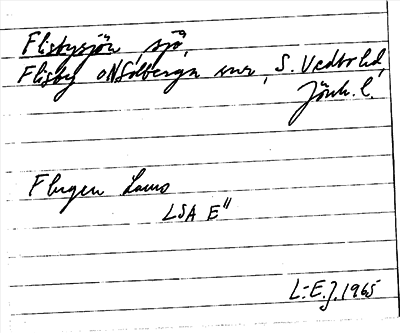 Flisbysjön, sjö,
Flisby o N Solberga snr, S. Vedbo hd,
Jönk. l.
Flugen
LSA E"
L-E.J. 1965